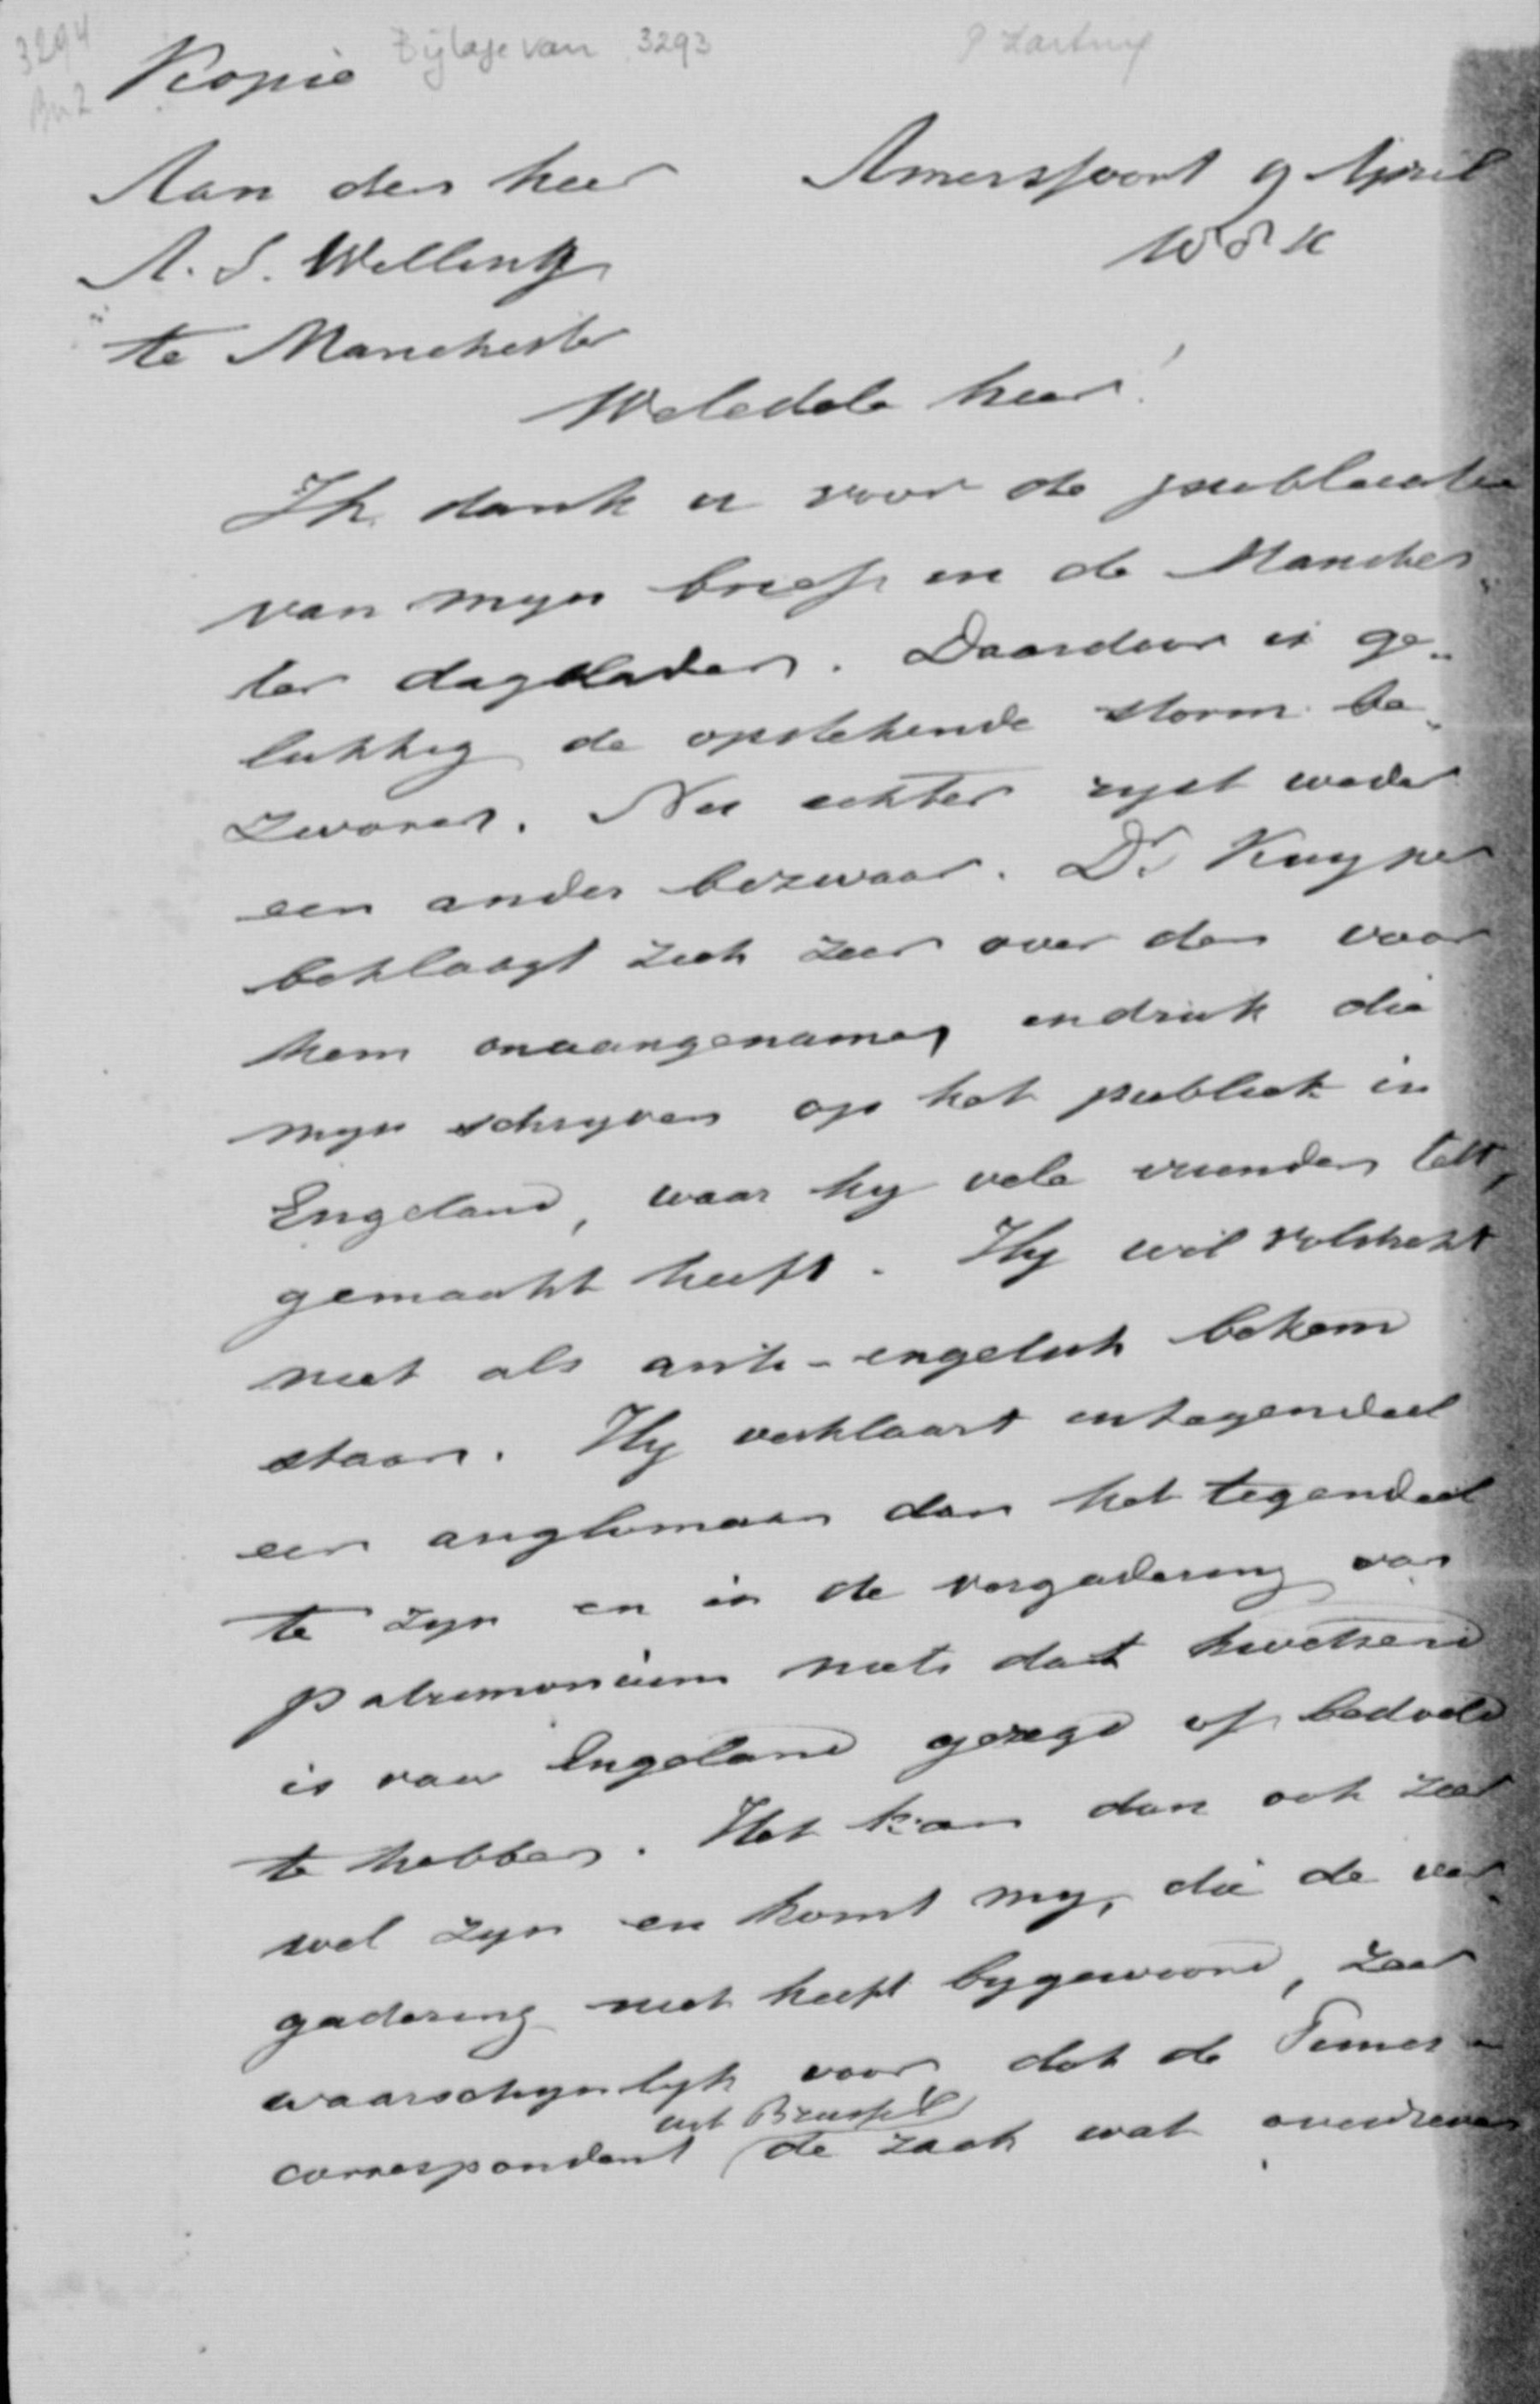 3294 Bijlage van 3293 P Harting
Bn 2
Kopie
Aan den heer Amersfoort 9 April
A. S. Welling
te Manchester
Weledele heer!
Ik dank u voor de publicatie
van myn brief in de Manches„
ter dagbladen. Daardoor is ge„
lukkig de opstekende storm be„
zworen. Nu echter ryst weder
een ander bezwaar. Dr Kuyper
beklaagt zich zeer over den voor
hem onaangenamen indruk die
myn schryven op het publiek in
Engeland, waar hy vele vrienden telt,
gemaakt heeft. Hy wil volstrekt
niet als anti-engelsch bekend
staan. Hy verklaart integendeel
eer anglomaan dan het tegendeel
te zyn en in de vergadering van
patrimonium niets dat kwetsend
is voor Engeland gezegd of bedoeld
te hebben. Het kan dan ook zeer
wel zyn en komt my, die de ver„
gadering niet heeft bygewoond, zeer
waarschynlyk voor dat de Times-
correspondent uit Brussel de zaak wat overdreven